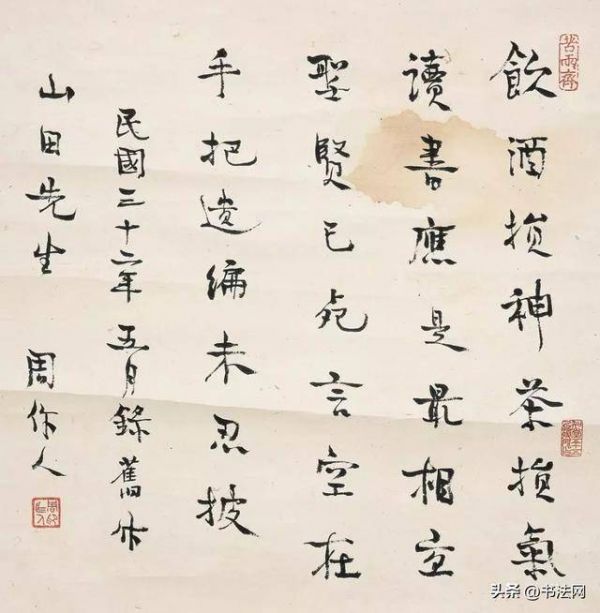 苦雨齋
飲酒損神茶損氣
讀書應是最相宜
聖賢已死言空在
手把遺編未忍披
民國三十二年五月錄舊作
山田先生 周作人
头条 @书法网